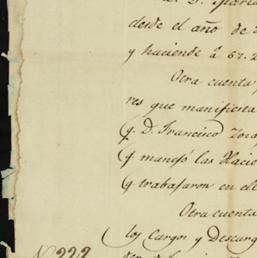 desde el año de
y haciende à 67.2
Otra cuenta
res que manifiesta
q. D. Francisco
q manejó las Hacie
q. trabajaron en el
Otra cuenta
los Cargos y Descarg
Nº 222